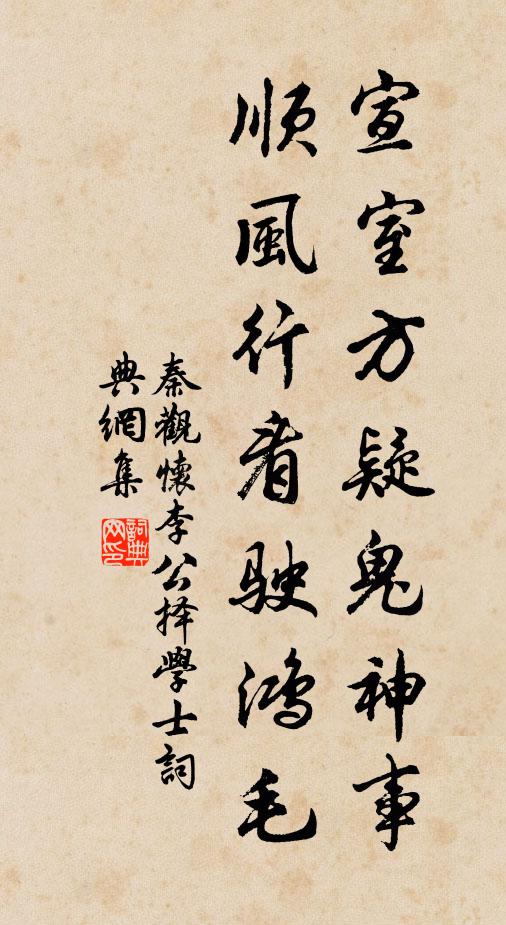 宣室方疑鬼神事
順風行看駛鴻毛
秦觀懷李公择學士詞
典網集
詞典網印